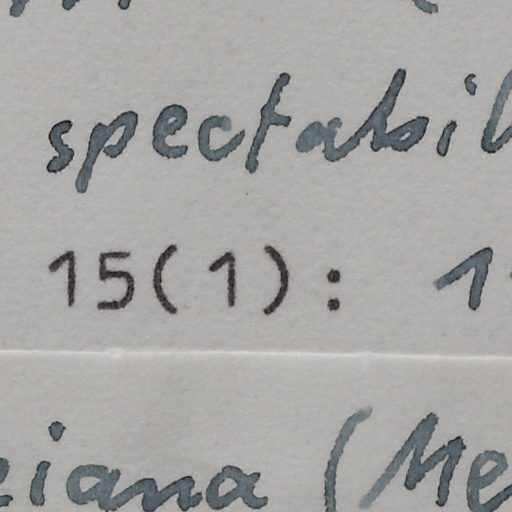 spectabil
15(1): 1
eiana (Me